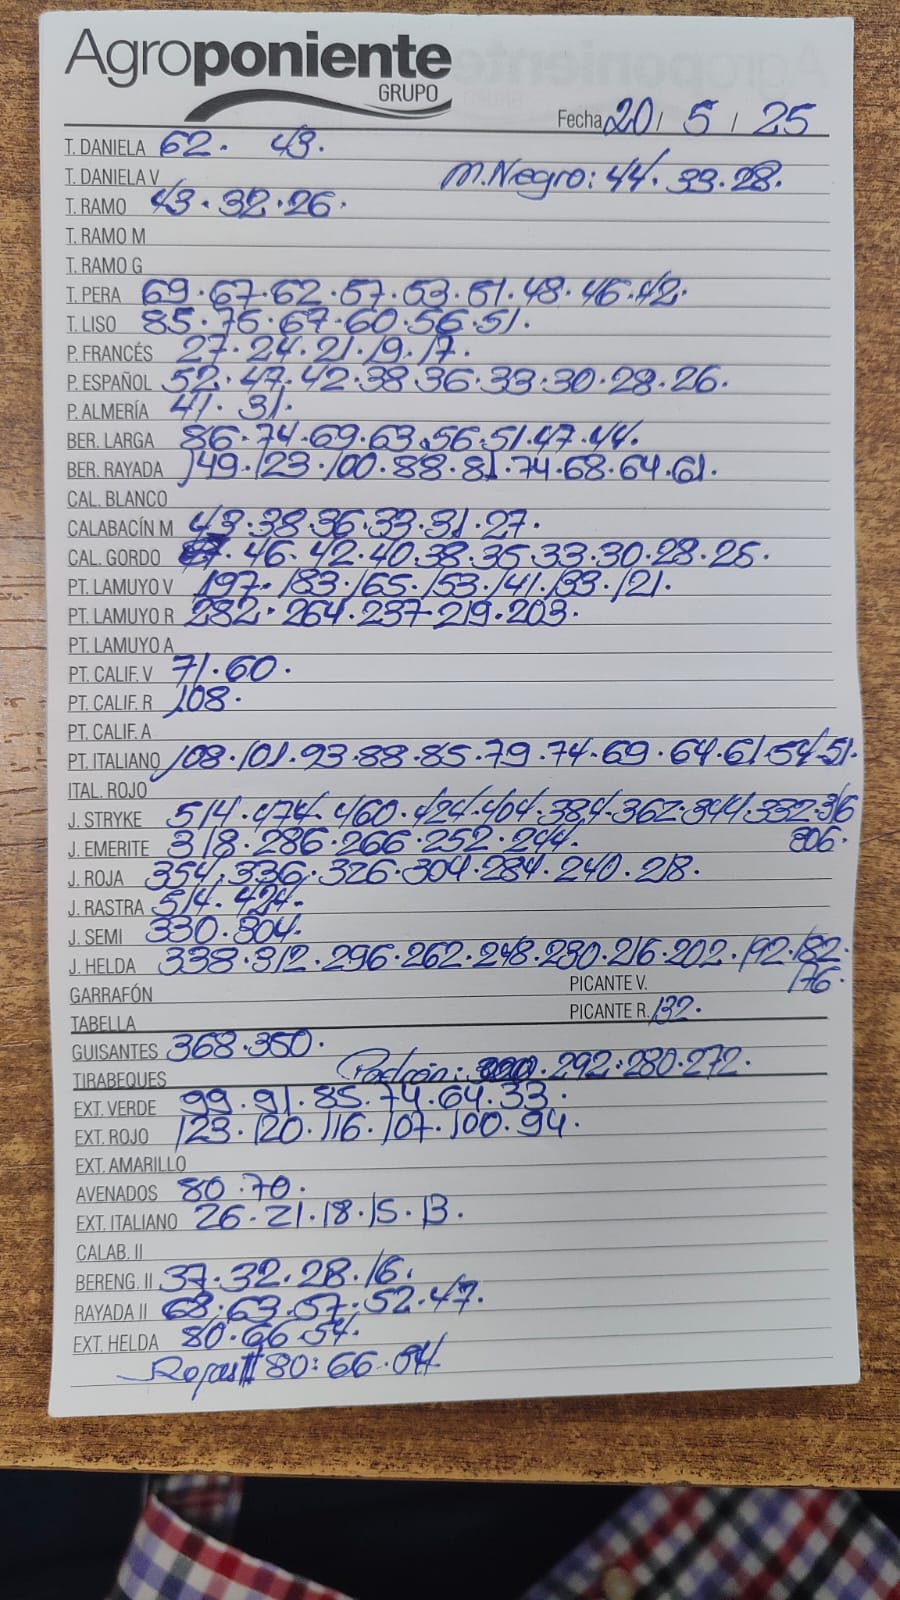 Agroponiente
GRUPO
Fecha 20 / 5 / 25
T. DANIELA 62. 43.
T. DANIELA V M.Negro: 44. 33. 28.
T. RAMO 43. 32. 26.
T. RAMO M
T. RAMO G
T. PERA 69. 67. 62. 57. 53. 51. 48. 46. 42.
T. LISO 85. 75. 67. 60. 56. 51.
P. FRANCÉS 27. 24. 21. 19. 17.
P. ESPAÑOL 52. 47. 42. 38. 36. 33. 30. 28. 26.
P. ALMERÍA 41. 31.
BER. LARGA 86. 74. 69. 63. 56. 51. 47. 44.
BER. RAYADA 149. 123. 100. 88. 81. 74. 68. 64. 61.
CAL. BLANCO
CALABACÍN M 43. 38. 36. 33. 31. 27.
CAL. GORDO 46. 42. 40. 38. 35. 33. 30. 28. 25.
PT. LAMUYO V 197. 183. 165. 153. 141. 133. 121.
PT. LAMUYO R 282. 264. 237. 219. 203.
PT. LAMUYO A
PT. CALIF. V 71. 60.
PT. CALIF. R 108.
PT. CALIF. A
PT. ITALIANO 108. 101. 93. 88. 85. 79. 74. 69. 64. 61. 54. 51.
ITAL. ROJO
J. STRYKE 514. 474. 460. 424. 404. 384. 362. 344. 332. 316
J. EMERITE 318. 286. 266. 252. 244. 306.
J. ROJA 354. 336. 326. 304. 284. 240. 218.
J. RASTRA 514. 424.
J. SEMI 330. 304.
J. HELDA 338. 312. 296. 262. 248. 230. 216. 202. 192. 182.
GARRAFÓN PICANTE V. 176.
TABELLA PICANTE R. 132.
GUISANTES 368. 350.
TIRABEQUES Padrón: 292. 280. 272.
EXT. VERDE 99. 91. 85. 74. 64. 33.
EXT. ROJO 123. 120. 116. 107. 100. 94.
EXT. AMARILLO
AVENADOS 80. 70.
EXT. ITALIANO 26. 21. 18. 15. 13.
CALAB. II
BERENG. II 37. 32. 28. 16.
RAYADA II 68. 63. 57. 52. 47.
EXT. HELDA 80. 66. 54.
Rojas II 80: 66. 54.